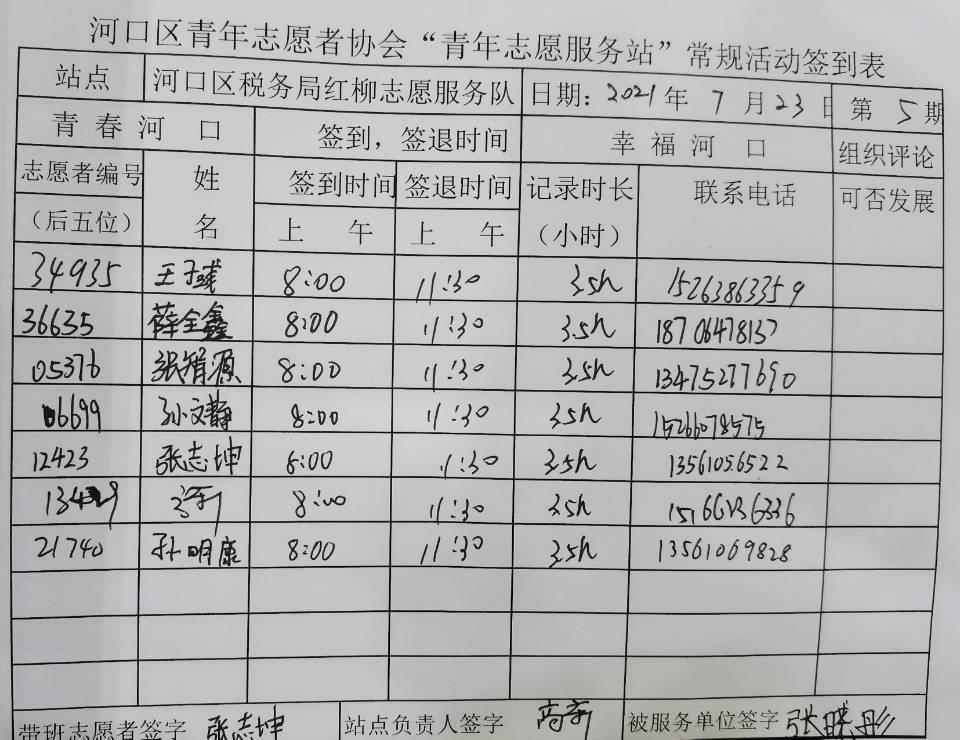 河口区青年志愿者协会“青年志愿服务站”常规活动签到表
站点 河口区税务局红柳志愿服务队 日期: 2021年 7 月 23 日 第 5 期
青 春 河 口 签到，签退时间 幸 福 河 口 组织评论
志愿者编号 姓 签到时间 签退时间 记录时长 联系电话 可否发展
（后五位） 名 上 午 上 午 （小时）
34935 王 8:00 11:30 3.5h 15263863359
36635 薛全鑫 8:00 11:30 3.5h 1870647813
05376 张 源 8:00 11:30 3.5h 13475277690
06699 孙文静 8:00 11:30 3.5h 15266078575
12423 张志坤 8:00 11:30 3.5h 13561056522
8:00 11:30 3.5h
21740 孙明康 8:00 11:30 3.5h 13561069828
带班志愿者签字 张志坤 站点负责人签字 高新 被服务单位签字 张晓彤